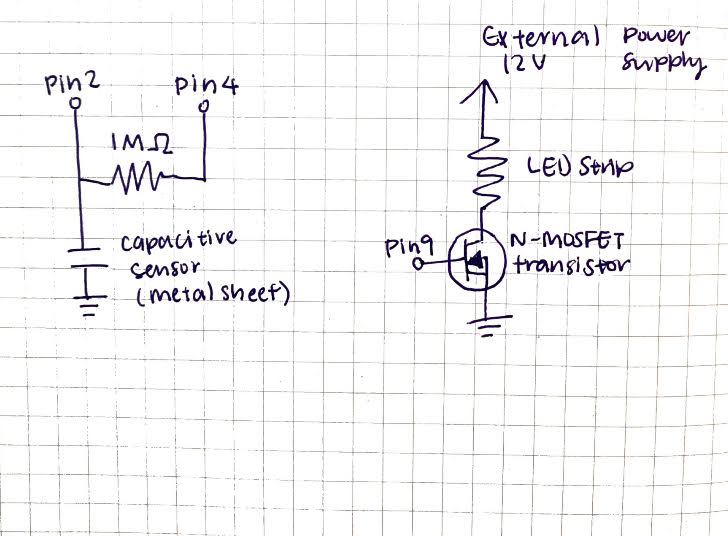 Pin2
Pin4
1MΩ
capacitive
sensor
(metal sheet)
External Power
12V Supply
LED Strip
Pin9
N-MOSFET
transistor